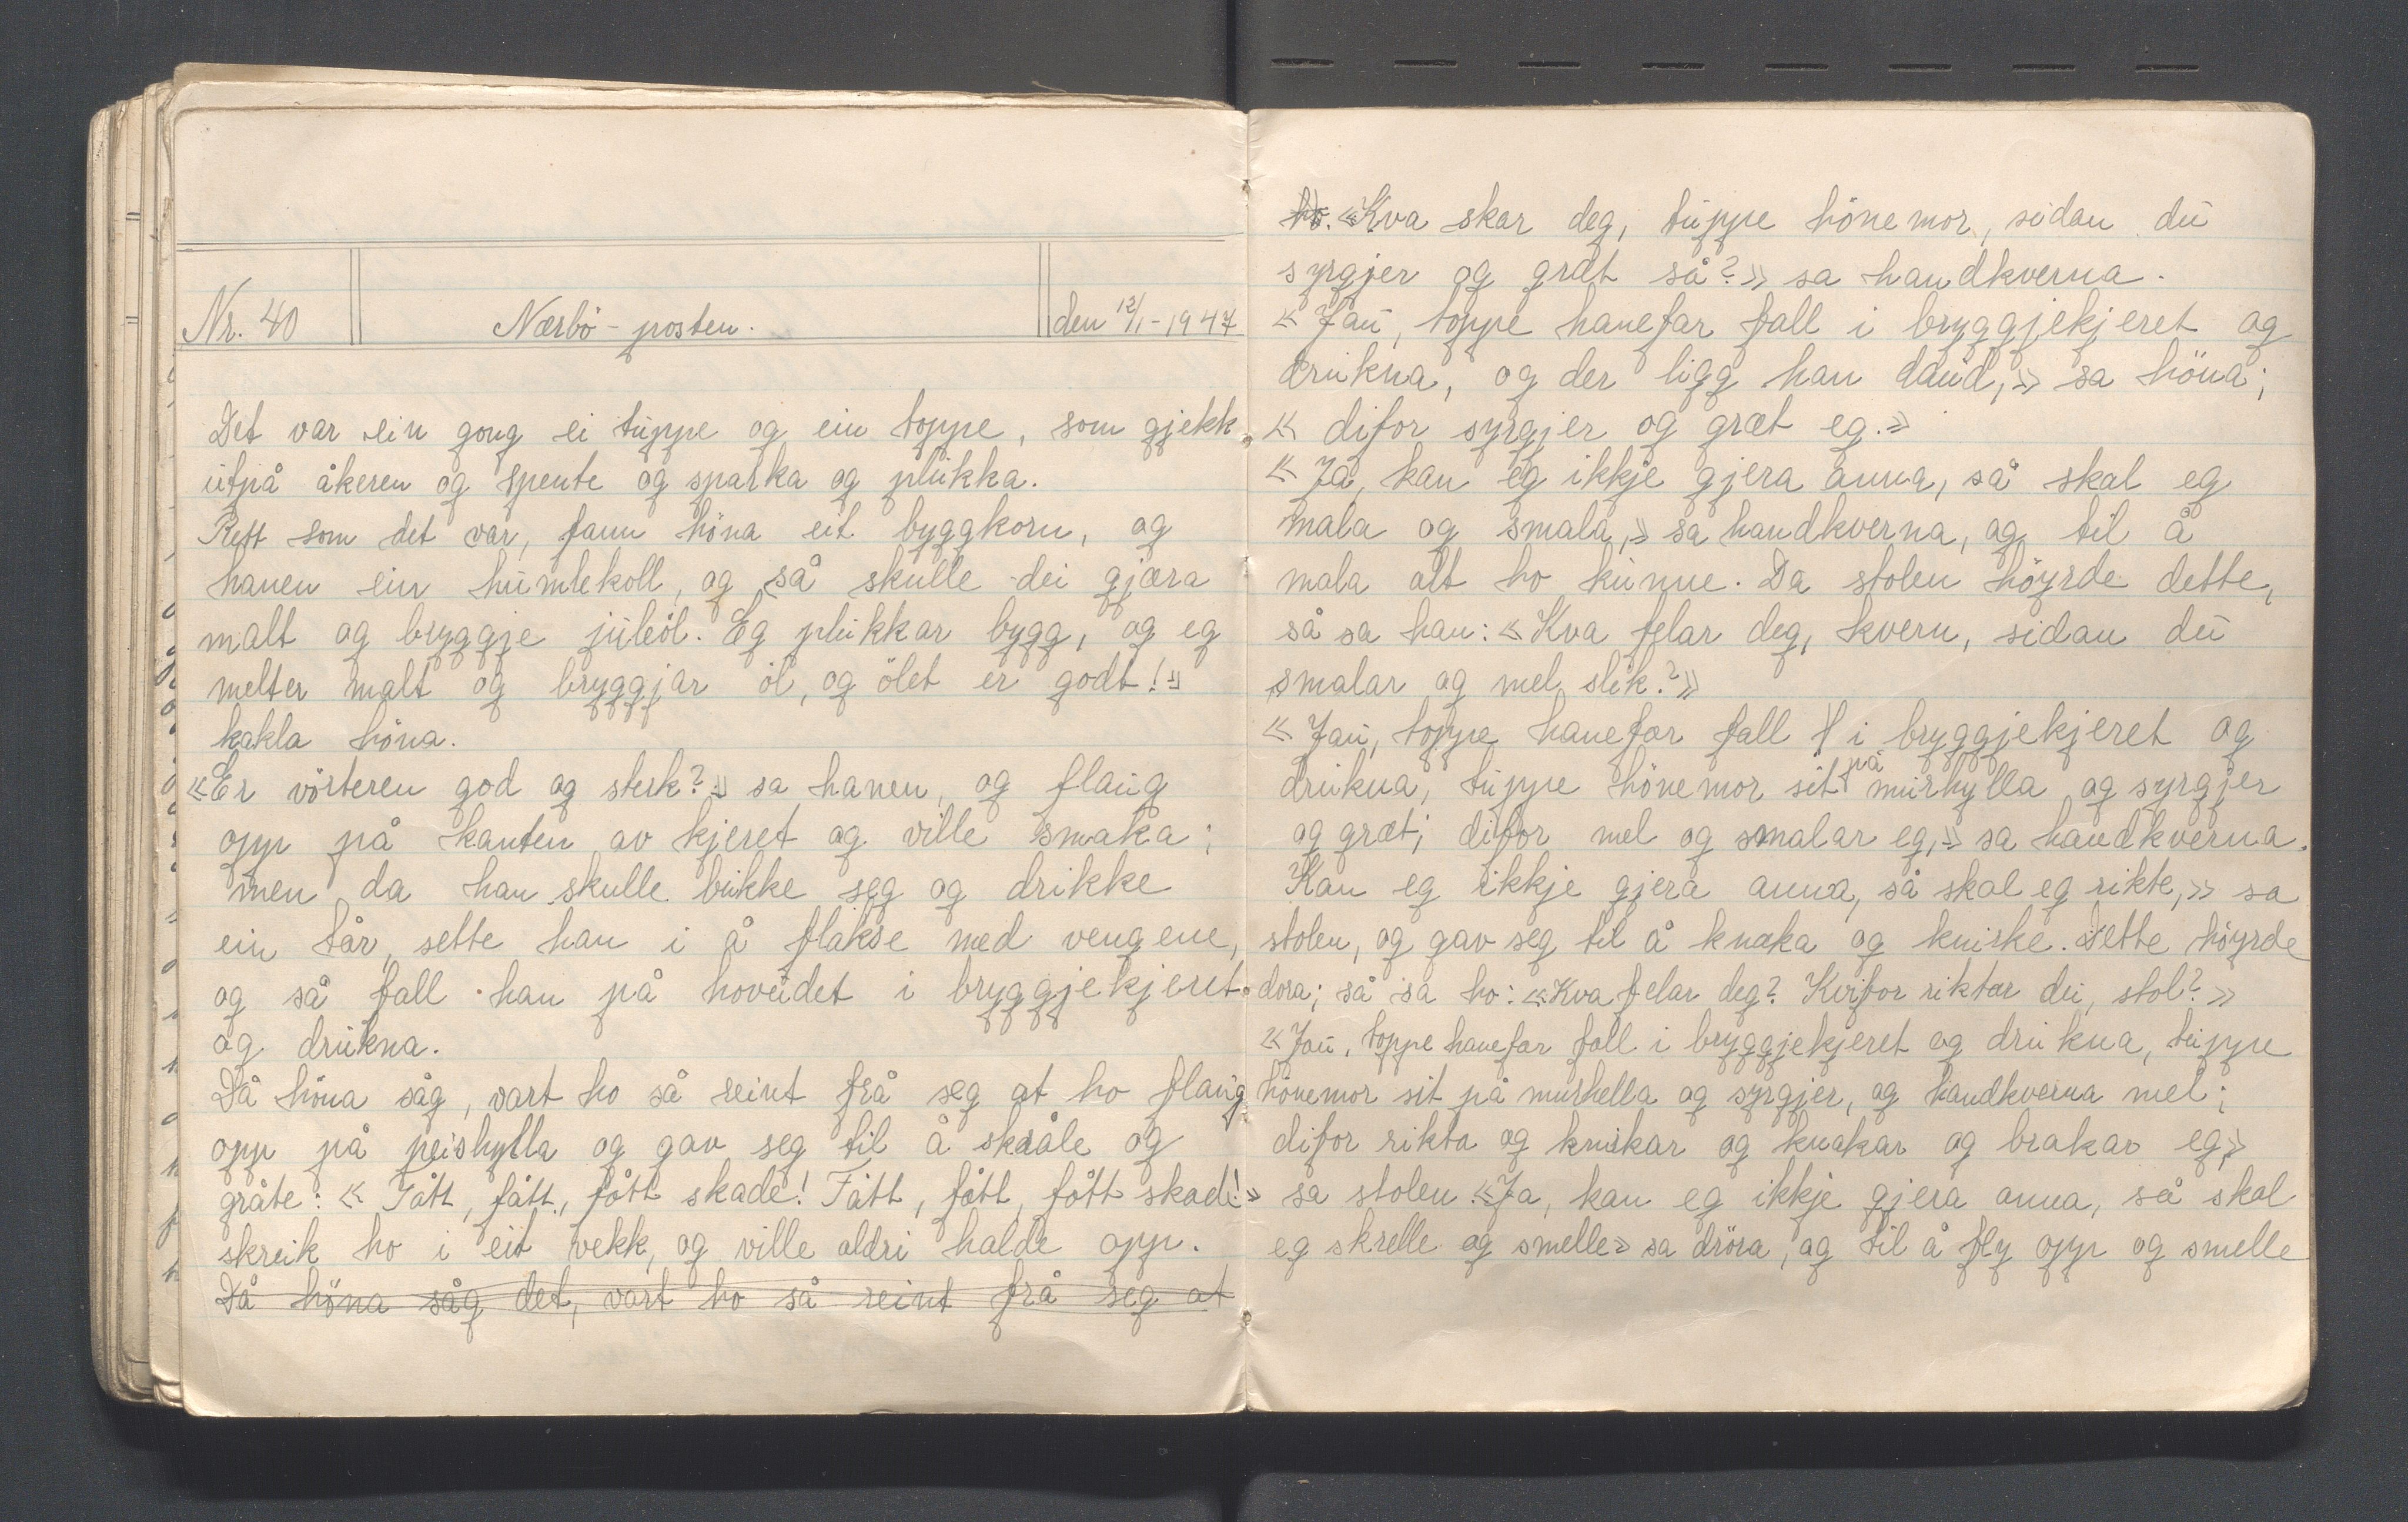 Nr. 40
Nærbö-posten.
den 12/1-1947
Det var ein gong ei tuppe og ein toppe, som gjekk
utpå åkeren og spente og sparka og plukka.
Rett som det var, fann höna eit byggkorn, og
hanen ein humlekoll, og så skulle dei gjæra
malt og bryggje juleöl. Eg plukkar bygg, og eg
melter malt og bryggjar öl, og ölet er godt!»
kakla höna.
«Er vörteren god og sterk?» sa hanen, og flaug
opp på kanten av kjeret og ville smaka;
men da han skulle bukke seg og drikke
ein tår, sette han i å flakse med vengene,
og så fall han på hovudet i bryggjekjeret
og drukna.
Då höna såg, vart ho så reint frå seg at ho flaug
opp på peishylla og gav seg til å skråle og
gråte: « Fått, fått, fått skade! Fått, fått, fått skade!»
skreik ho i eit vekk, og ville aldri halde opp.
Då höna såg det, vart ho så reint frå seg at
ho. «Kva skar deg, tuppe hönemor, sidan du
syrgjer og græt så?» sa handkverna.
« Jau, toppe hanefar fall i bryggjekjeret og
drukna, og der ligg han daud,» sa höna;
« difor syrgjer og græt eg.»
« Ja, kan eg ikkje gjera anna, så skal eg
mala og smala,» sa handkverna, og til å
mala alt ho kunne. Da stolen höyrde dette,
så sa han: «Kva felar deg, kvern, sidan du
smalar og mel slik?»
« Jau, toppe hanefar fall i bryggjekjeret og
drukna, tuppe hönemor sit på murhylla og syrgjer
og græt; difor mel og smalar eg,» sa handkverna.
Kan eg ikkje gjera anna, så skal eg rikte,» sa
stolen, og gav seg til å knaka og kniske. Dette höyrde
dora; så sa ho: «Kva felar deg? Kvifor riktar du, stol?»
« Jau, toppe hanefar fall i bryggjekjeret og drukna, tuppe
hönemor sit på murhella og syrgjer, og handkverna mel;
difor rikta og knirkar og knakar og brakar eg»
sa stolen. «Ja, kan eg ikkje gjera anna, så skal
eg skrelle og smelle» sa dröra, og til å fly opp og smelle